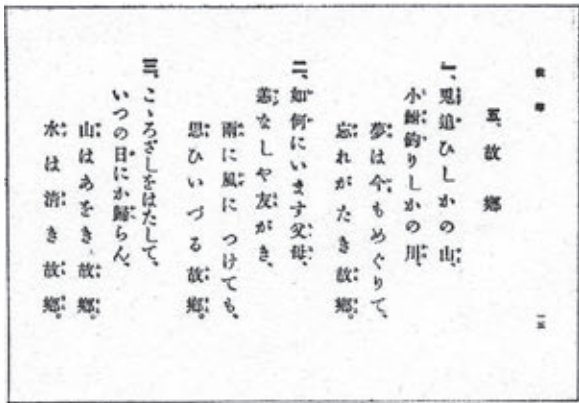 五、故鄕
一、兎追ひしかの山、
小鮒釣りしかの川、
夢は今もめぐりて、
忘れがたき故鄕。
二、如何にいます父母、
恙なしや友がき、
雨に風に つけても、
思ひいづる故鄕。
三、こゝろざしをはたして、
いつの日にか歸らん、
山はあをき故鄕。
水は清き故鄕。